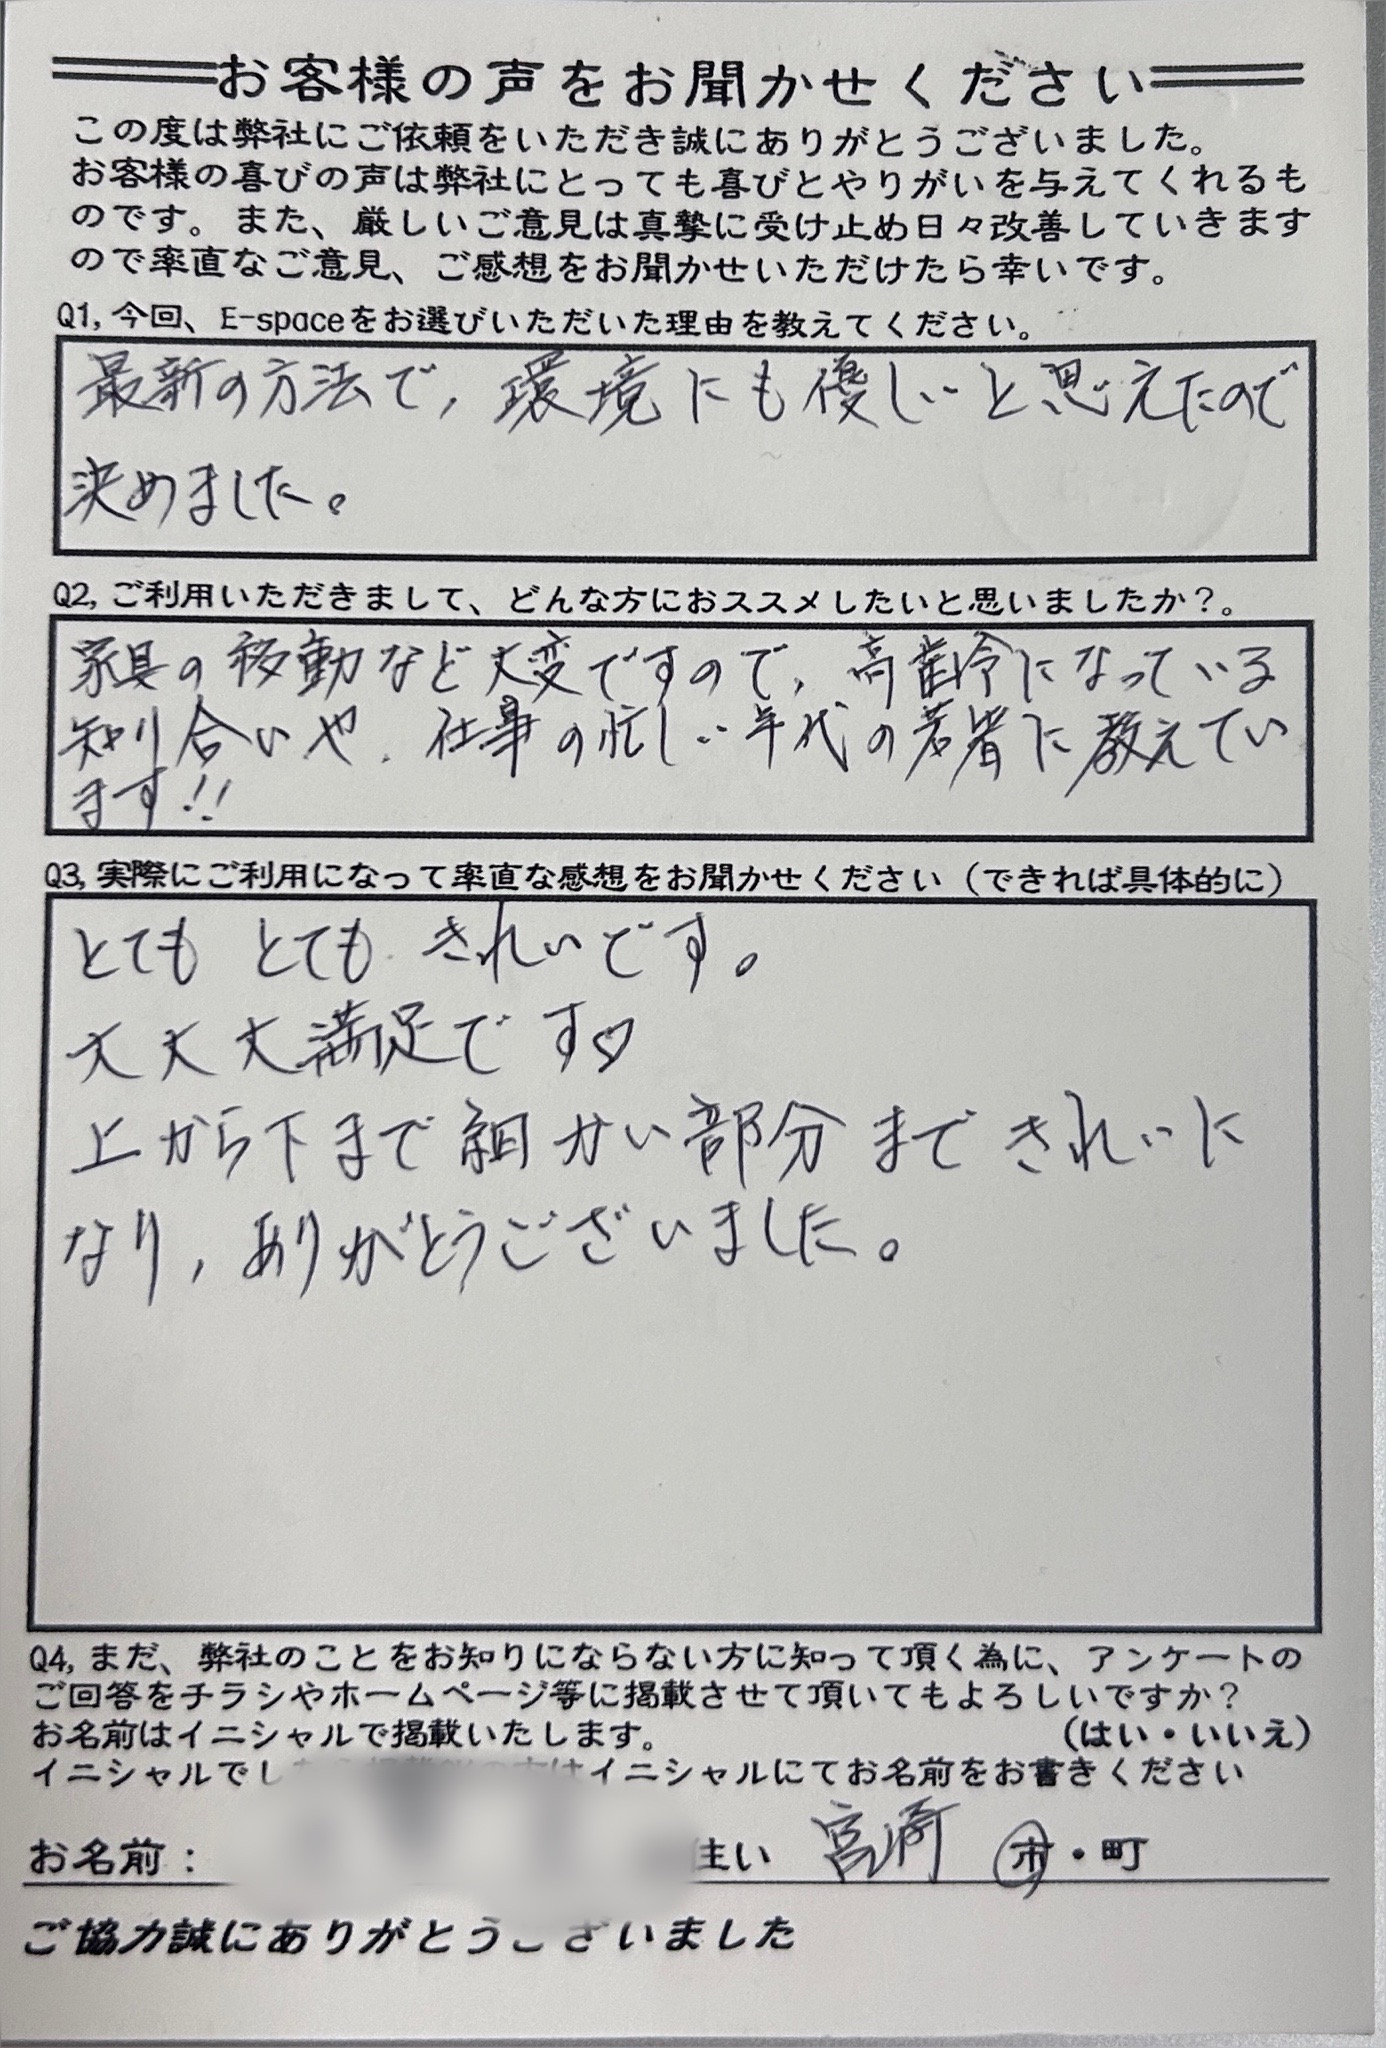 お客様の声をお聞かせください
この度は弊社にご依頼をいただき誠にありがとうございました。
お客様の喜びの声は弊社にとっても喜びとやりがいを与えてくれるも
のです。また、厳しいご意見は真摯に受け止め日々改善していきます
ので率直なご意見、ご感想をお聞かせいただけたら幸いです。
Q1,今回、E-spaceをお選びいただいた理由を教えてください。
最新の方法で,環境にも優しいと思えたので
決めました。
Q2,ご利用いただきまして、どんな方におススメしたいと思いましたか?。
家具の移動など大変ですので,高齢になっている
知り合いや,仕事の忙しい年代の若者に教えてい
ます!!
Q3,実際にご利用になって率直な感想をお聞かせください(できれば具体的に)
とても とても きれいです。
大大大満足です♡
上から下まで細かい部分まできれいに
なり,ありがとうございました。
Q4,まだ、弊社のことをお知りにならない方に知って頂く為に、アンケートの
ご回答をチラシやホームページ等に掲載させて頂いてもよろしいですか?
お名前はイニシャルで掲載いたします。 (はい・いいえ)
イニシャルでし イニシャルにてお名前をお書きください
お名前: 住い 宮崎 市・町
ご協力誠にありがとうございました